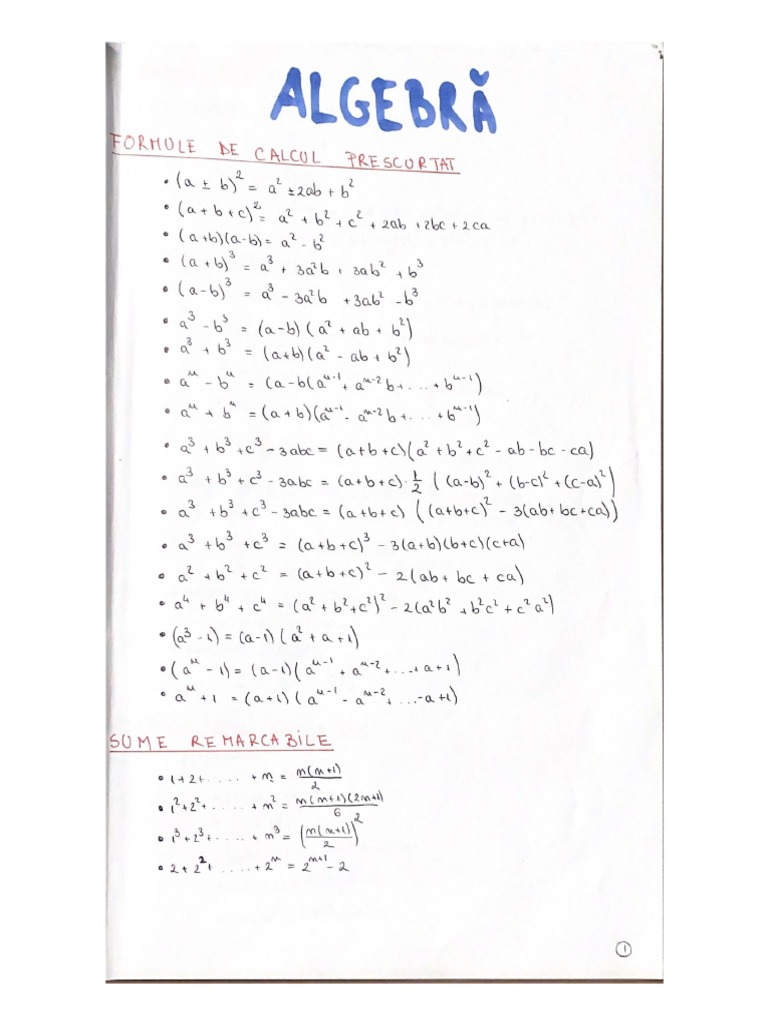 ALGEBRĂ
FORMULE DE CALCUL PRESCURTAT
• (a ± b)² = a² ± 2ab + b²
• (a + b + c)² = a² + b² + c² + 2ab + 2bc + 2ca
• (a+b)(a-b) = a² - b²
• (a + b)³ = a³ + 3a²b + 3ab² + b³
• (a - b)³ = a³ - 3a²b + 3ab² - b³
• a³ - b³ = (a-b)(a² + ab + b²)
• a³ + b³ = (a+b)(a² - ab + b²)
• aⁿ - bⁿ = (a-b(aⁿ⁻¹ + aⁿ⁻²b + ... + bⁿ⁻¹)
• aⁿ + bⁿ = (a+b)(aⁿ⁻¹ - aⁿ⁻²b + ... + bⁿ⁻¹)
• a³ + b³ + c³ - 3abc = (a+b+c)(a² + b² + c² - ab - bc - ca)
• a³ + b³ + c³ - 3abc = (a+b+c)·1/2 ((a-b)² + (b-c)² + (c-a)²)
• a³ + b³ + c³ - 3abc = (a+b+c) ((a+b+c)² - 3(ab+bc+ca))
• a³ + b³ + c³ = (a+b+c)³ - 3(a+b)(b+c)(c+a)
• a² + b² + c² = (a+b+c)² - 2(ab + bc + ca)
• a⁴ + b⁴ + c⁴ = (a² + b² + c²)² - 2(a²b² + b²c² + c²a²)
• (a³ - 1) = (a-1)(a² + a + 1)
• (aⁿ - 1) = (a-1)(aⁿ⁻¹ + aⁿ⁻² + ... + a + 1)
• aⁿ + 1 = (a+1)(aⁿ⁻¹ - aⁿ⁻² + ... - a + 1)
SUME REMARCABILE
• 1 + 2 + .... + n = n(n+1)/2
• 1² + 2² + .... + n² = n(n+1)(2n+1)/6
• 1³ + 2³ + .... + n³ = (n(n+1)/2)²
• 2 + 2² + .... + 2ⁿ = 2ⁿ⁺¹ - 2
1